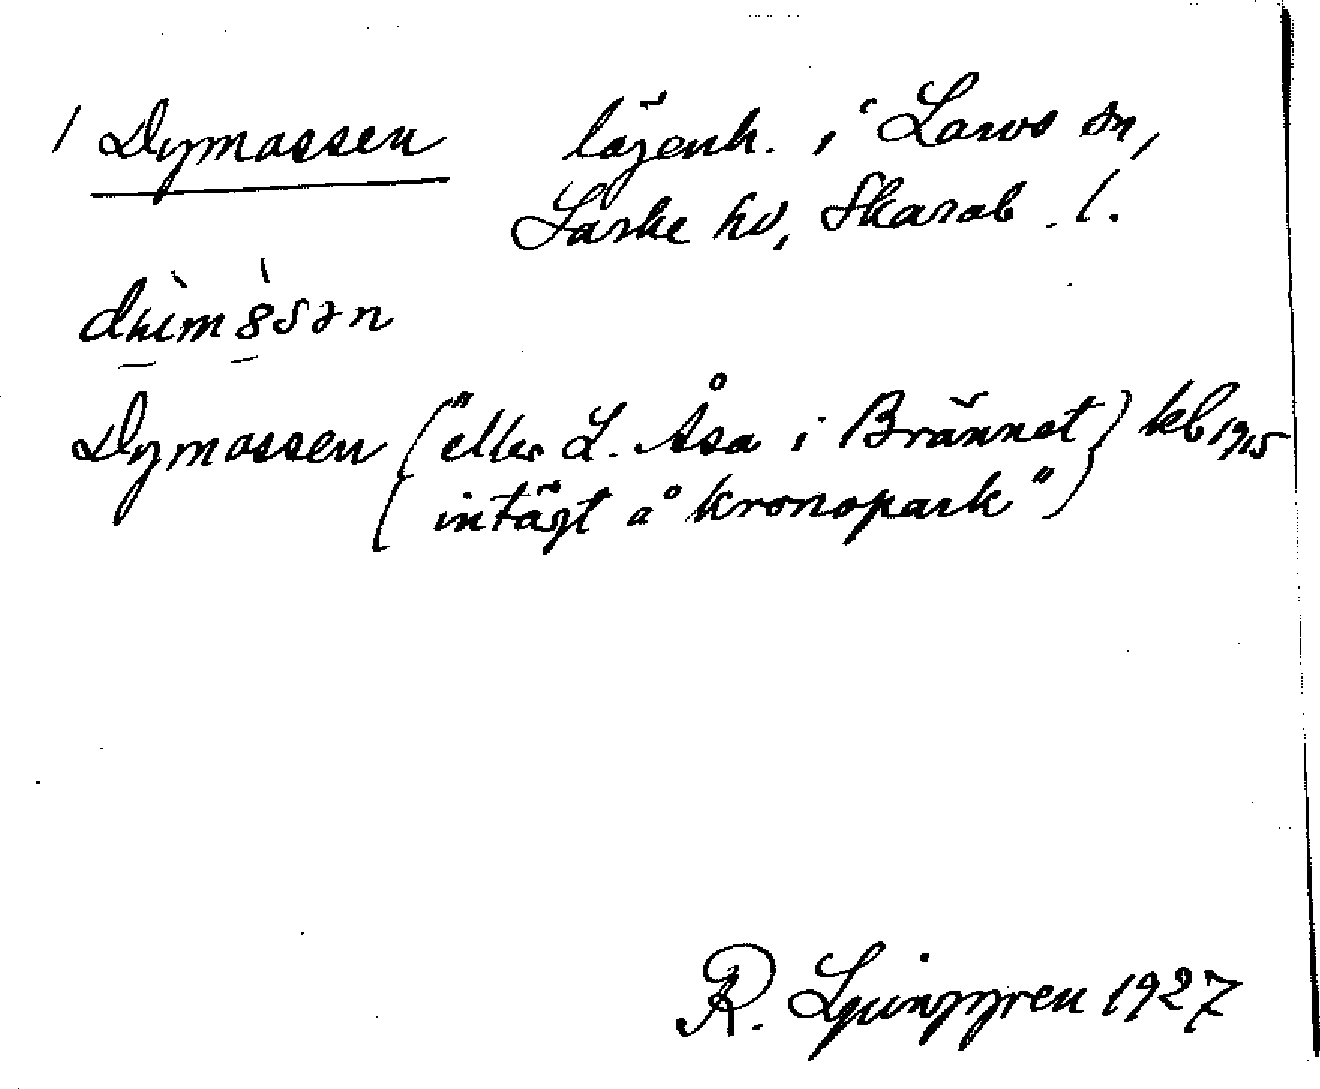 / Dymossen lägenh. i Larvs sn,
Laske hd, Skarab. l.
Dymossen ("eller L. Åsa i Brännet) kb 1915
(intägt å kronopark")
R. Ljunggren 1927